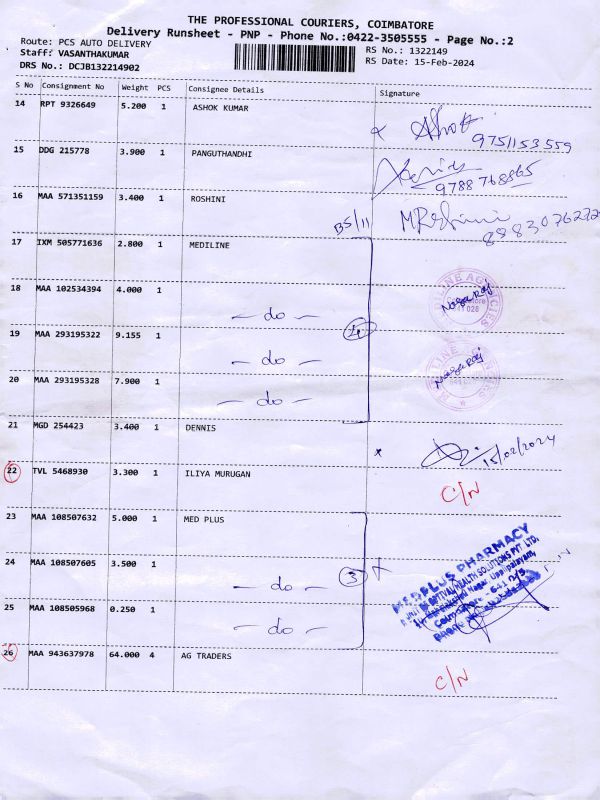 THE PROFESSIONAL COURIERS, COIMBATORE
Delivery Runsheet - PNP - Phone No.:0422-3505555 - Page No.:2
Route: PCS AUTO DELIVERY RS No.: 1322149
Staff: VASANTHAKUMAR RS Date: 15-Feb-2024
DRS No.: DCJB132214902
S No Consignment No Weight PCS Consignee Details Signature
14 RPT 9326649 5.200 1 ASHOK KUMAR x Ashok
9751153559
15 DDG 215778 3.900 1 PANGUTHANDHI
9788768865
16 MAA 571351159 3.400 1 ROSHINI
8883076272
BS/11
17 IXM 505771636 2.800 1 MEDILINE
18 MAA 102534394 4.000 1
- do - Nagaraj
19 MAA 293195322 9.155 1 4
- do - Nagaraj
20 MAA 293195328 7.900 1
- do -
21 MGD 254423 3.400 1 DENNIS
x 15/02/2024
22 TVL 5468930 3.300 1 ILIYA MURUGAN
C/N
23 MAA 108507632 5.000 1 MED PLUS
MEDPLUS PHARMACY
24 MAA 108507605 3.500 1
- do - 3
25 MAA 108505968 0.250 1
- do -
26 MAA 943637978 64.000 4 AG TRADERS
C/N